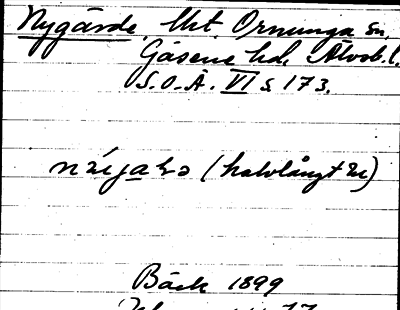 Nygärde Ukt. Ornunga sn,
Gäsene hd, Älvsb. l.
S.O.Ä. VI s 173.
(halvlångt
Bäck 1899